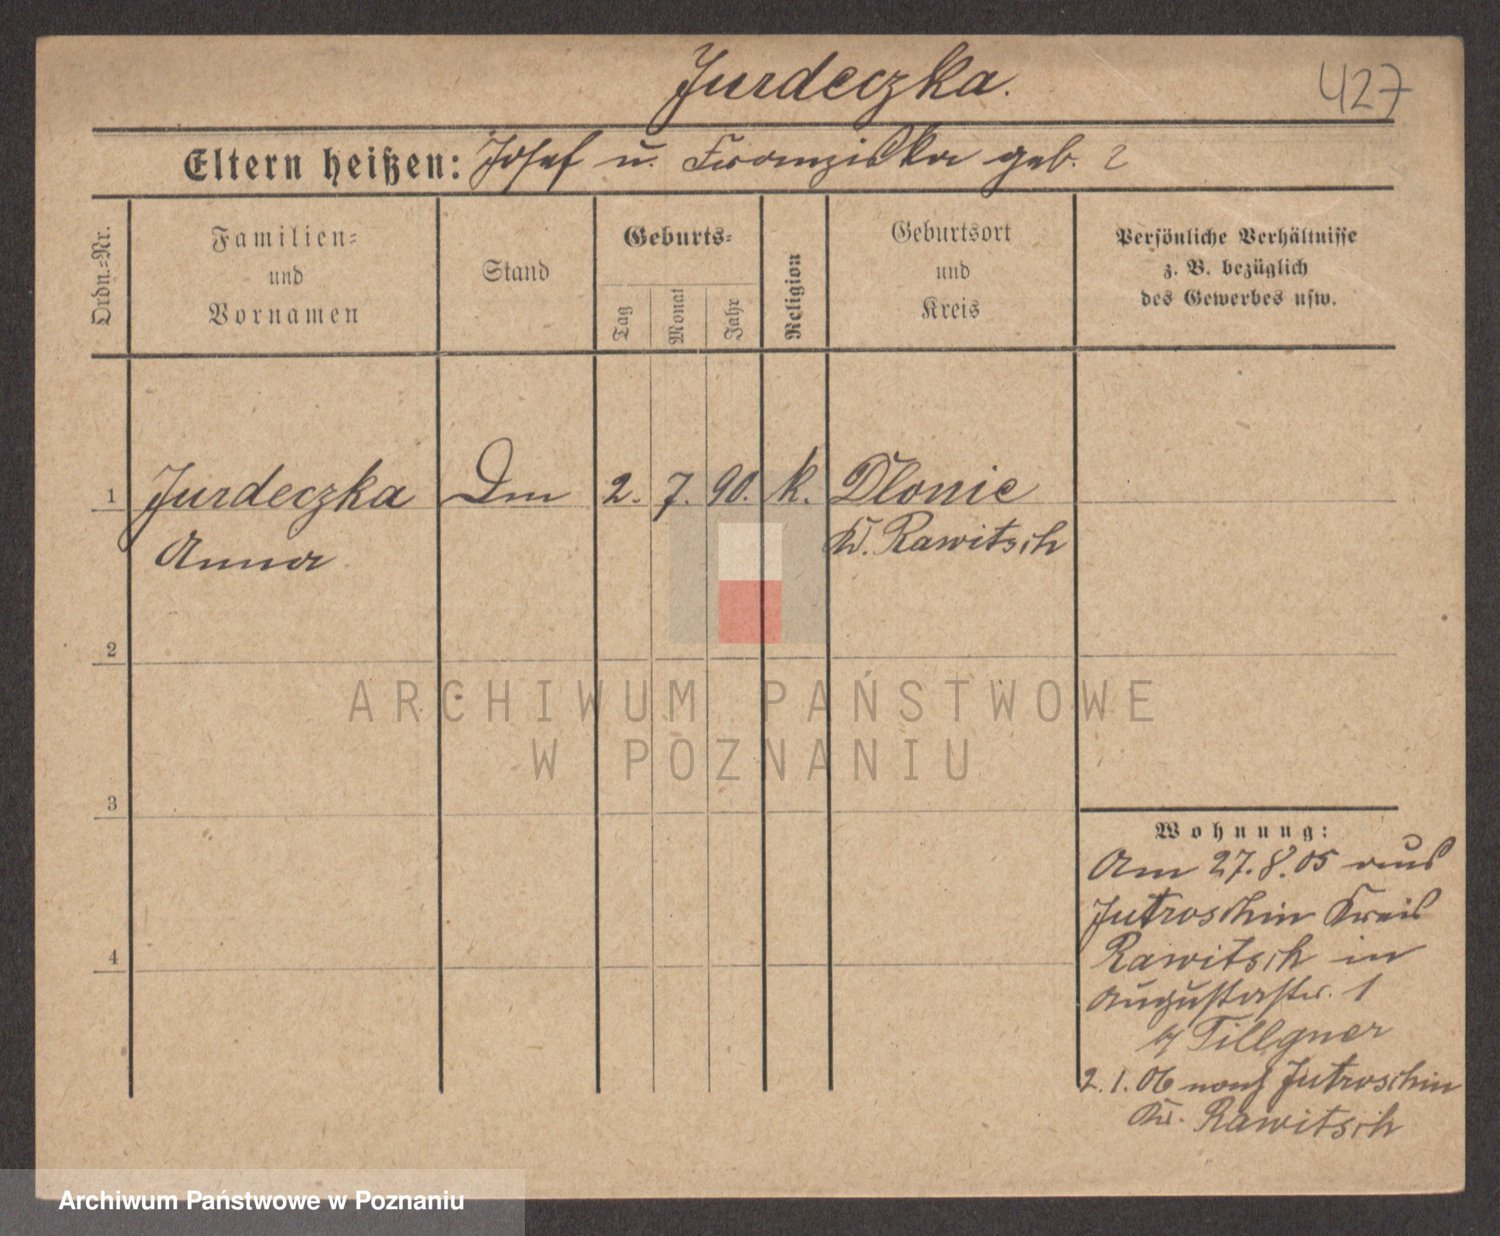 Jurdeczka.
427
Eltern heißen: Josef u. Franziska geb. ?
Ordn.-Nr.
Familien-
und
Vornamen
Stand
Geburts-
Tag
Monat
Jahr
Religion
Geburtsort
und
Kreis
Persönliche Verhältnisse
z. B. bezüglich
des Gewerbes usw.
1 Jurdeczka Dm 2. 7. 90. k. Dlonie
Anna Kr. Rawitsch
2
ARCHIWUM PAŃSTWOWE
W POZNANIU
3
Wohnung:
Am 27.8.05 aus
Jutroschin Kreis
Rawitsch in
4
Augustastr. 1
b/ Tillgner
2.1.06 nach Jutroschin
Kr. Rawitsch
Archiwum Państwowe w Poznaniu